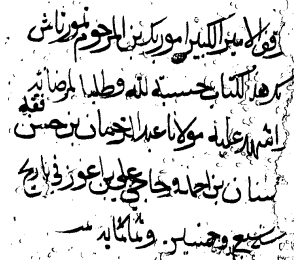 وقف الامير الكبير امور بك بن المرحوم تمورتاش
هذا الكتاب حسبة لله وطلبا لمرضاته
اشهد عليه مولانا عبد الرحمان بن حسن فقيه
سنان بن احمد وحاجي علي بن اعوز في تاريخ
سنه سبع وخمسين وثمانمايه